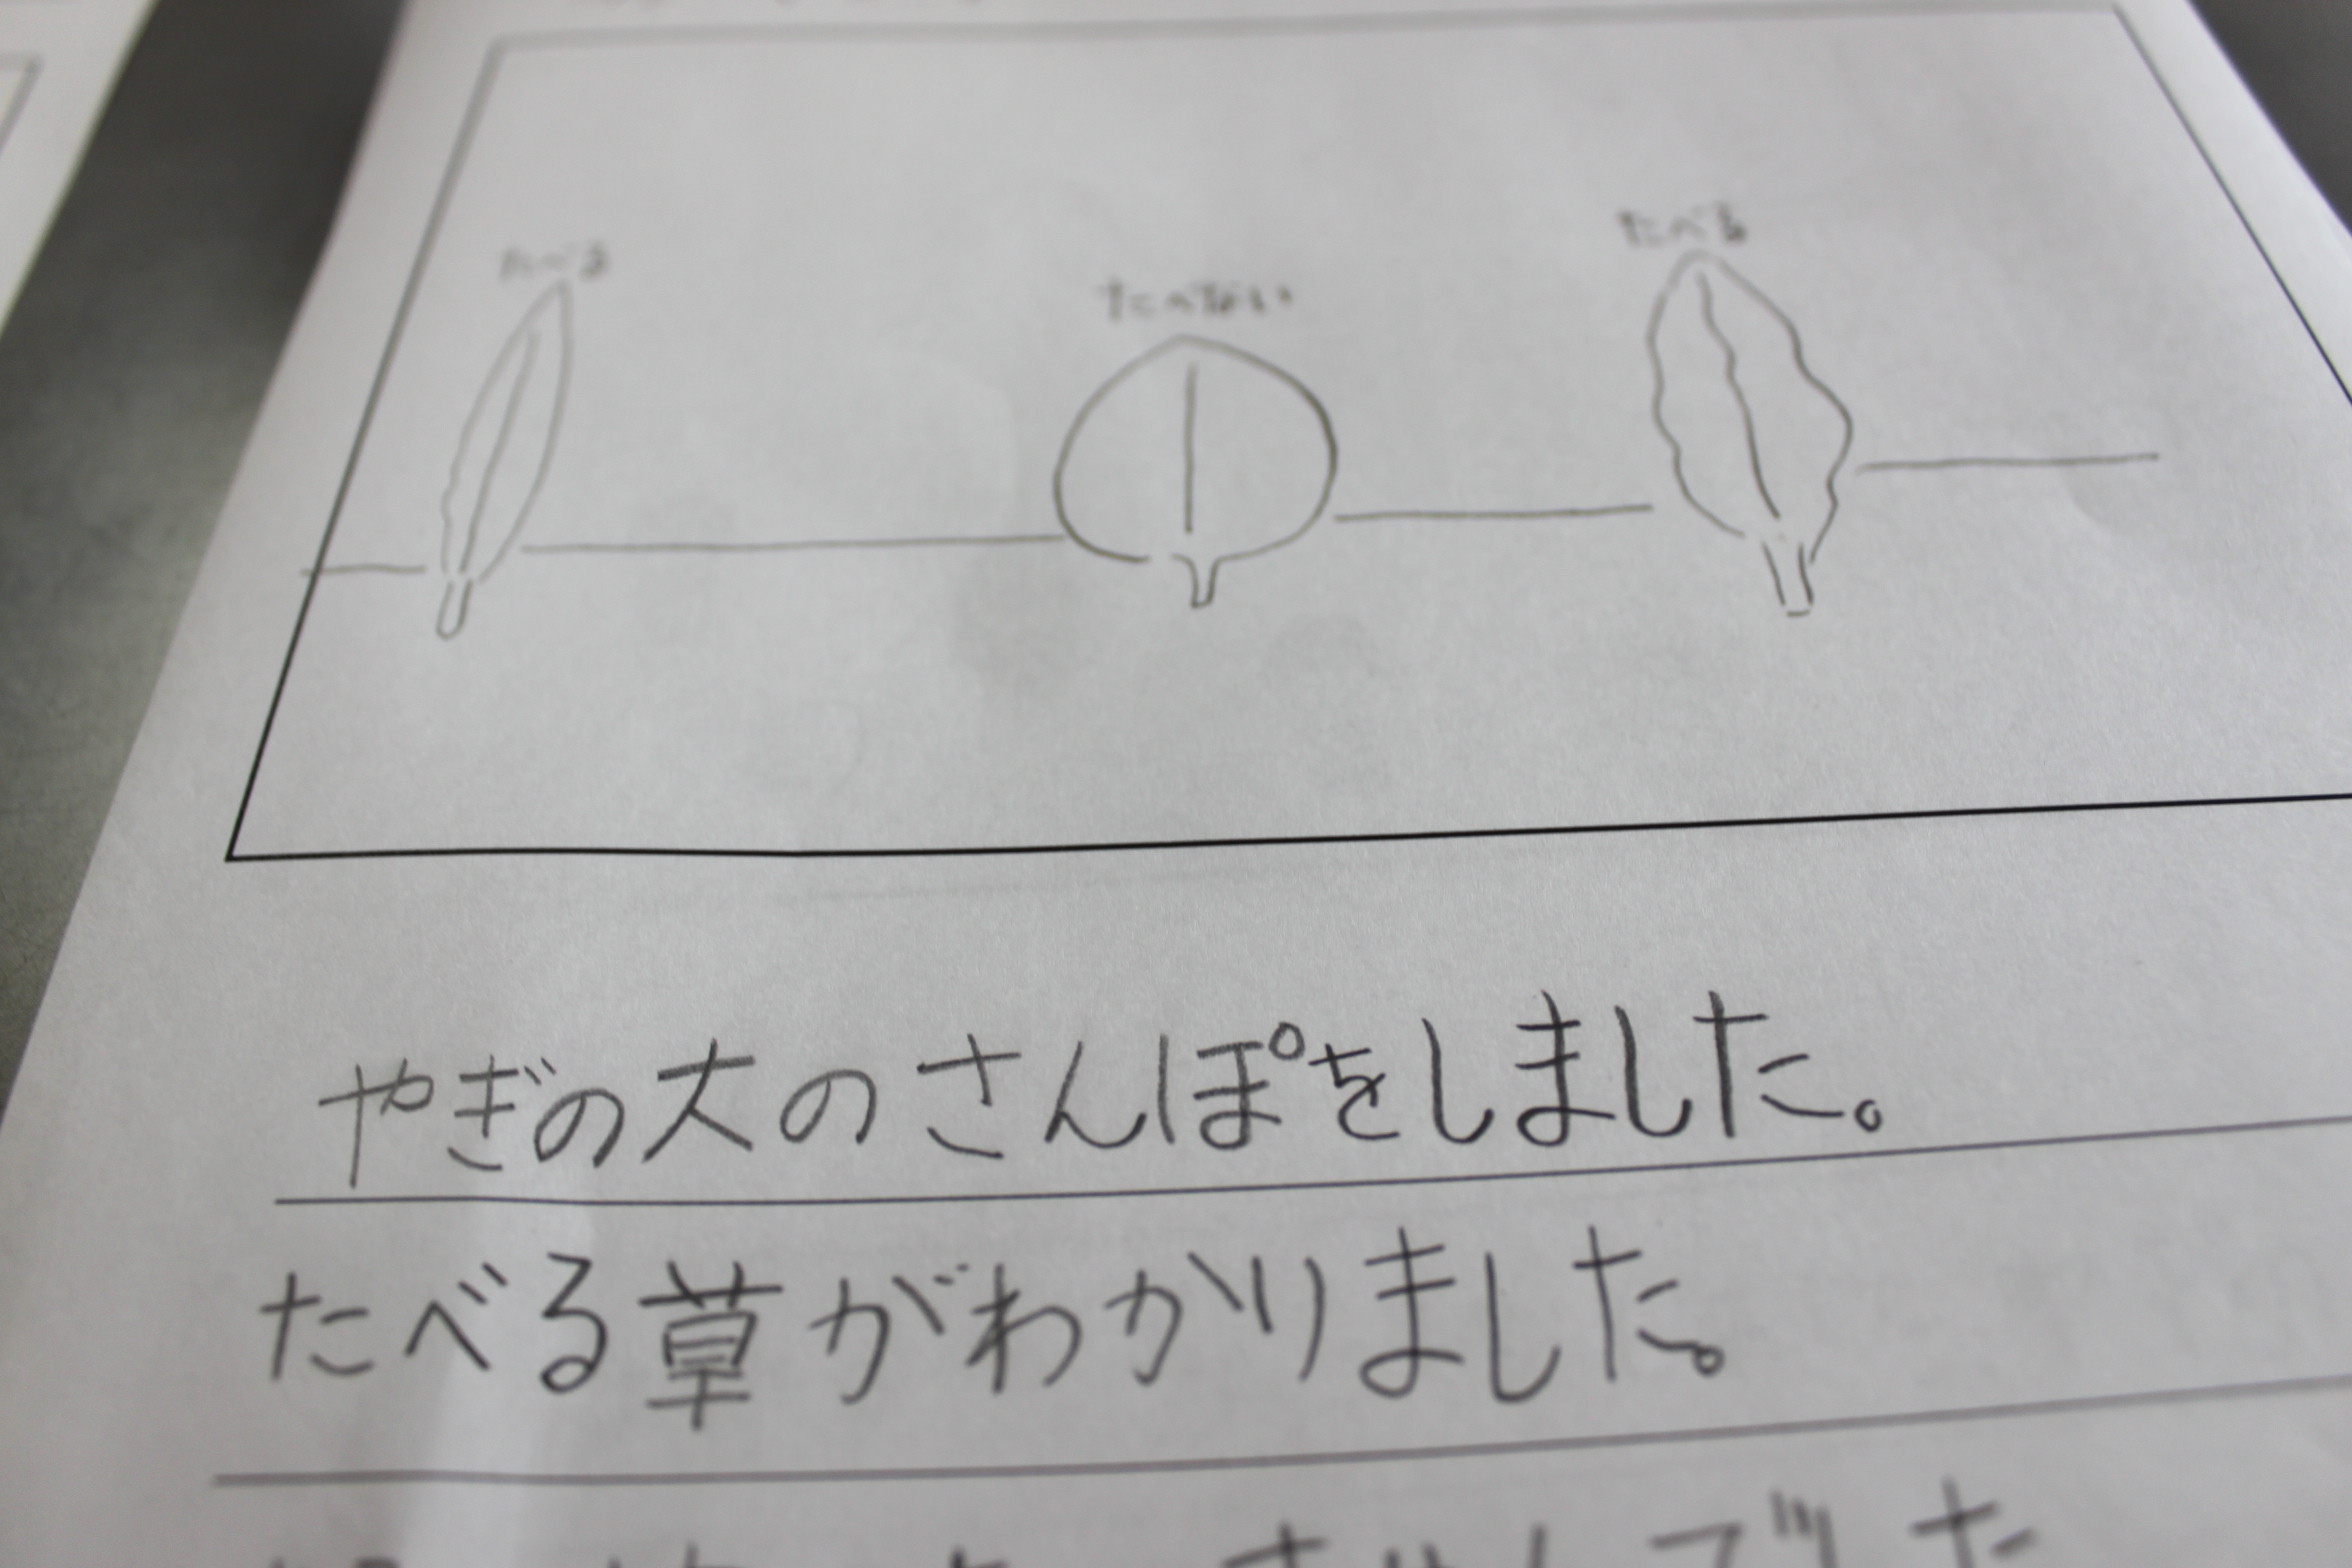 たべる
たべない
たべる
やぎの大のさんぽをしました。
たべる草がわかりました。